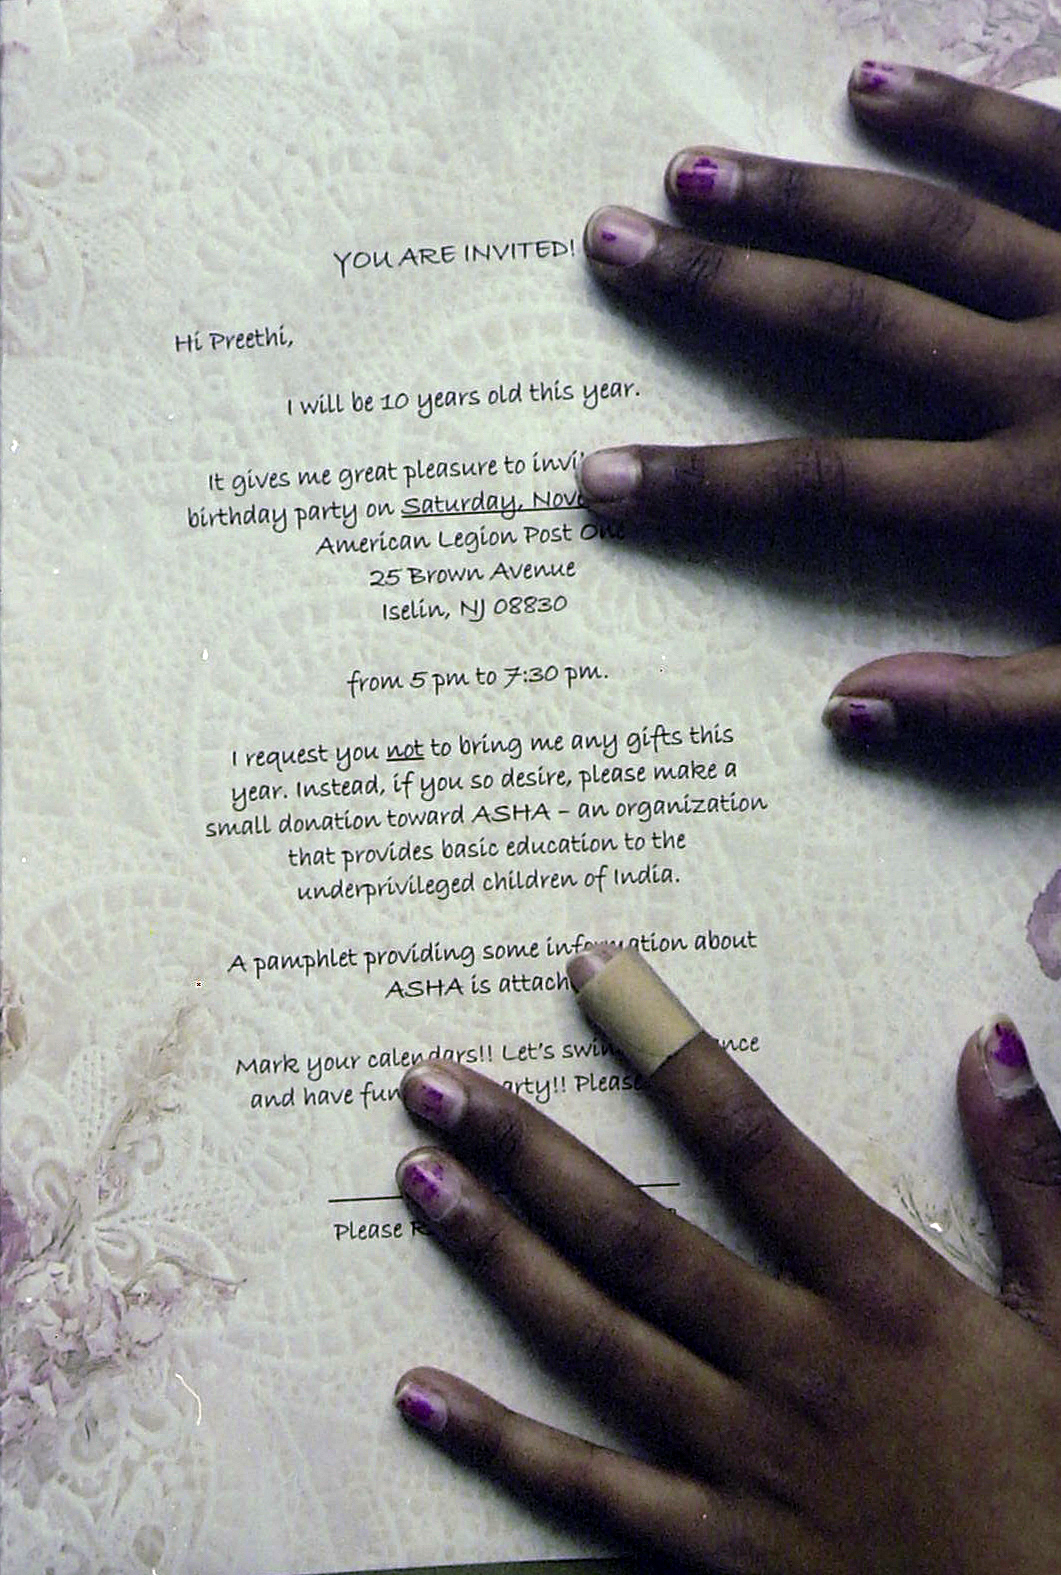 YOU ARE INVITED!
Hi Preethi,
I will be 10 years old this year.
It gives me great pleasure to
birthday party on Saturday,
American Legion Post One
25 Brown Avenue
Iselin, NJ 08830
from 5 pm to 7:30 pm.
I request you not to bring me any gifts this
year. Instead, if you so desire, please make a
small donation toward ASHA – an organization
that provides basic education to the
underprivileged children of India.
A pamphlet providing some information about
ASHA is
Mark your calendars!! Let's
and have fun Please
Please